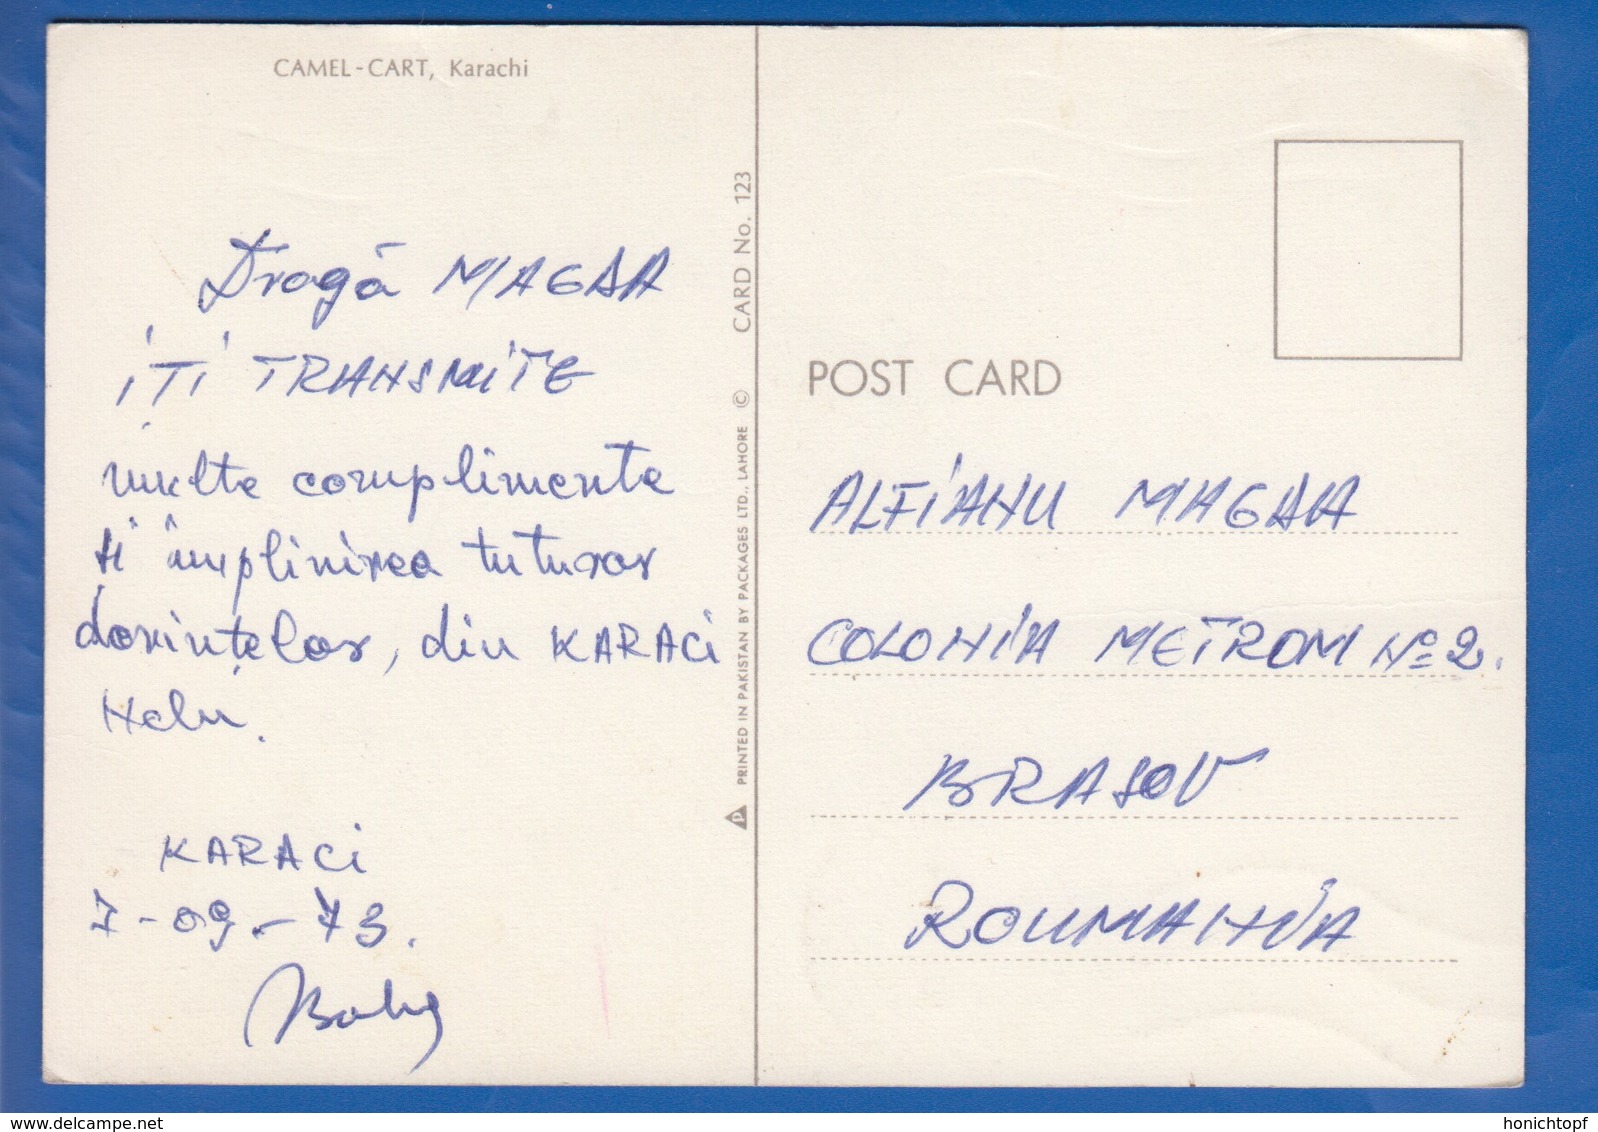 CAMEL-CART, Karachi
Dragă MAGDA
IȚI TRANSMITE
multe complimente
și împlinirea tuturor
dorințelor, din KARACI
Nelu.
KARACI
7-09-73.
PRINTED IN PAKISTAN BY PACKAGES LTD., LAHORE © CARD No. 123
POST CARD
ALFIANU MAGDA
COLONIA METROM No 2.
BRASOV
ROUMANIA
delcampe.net
honichtopf